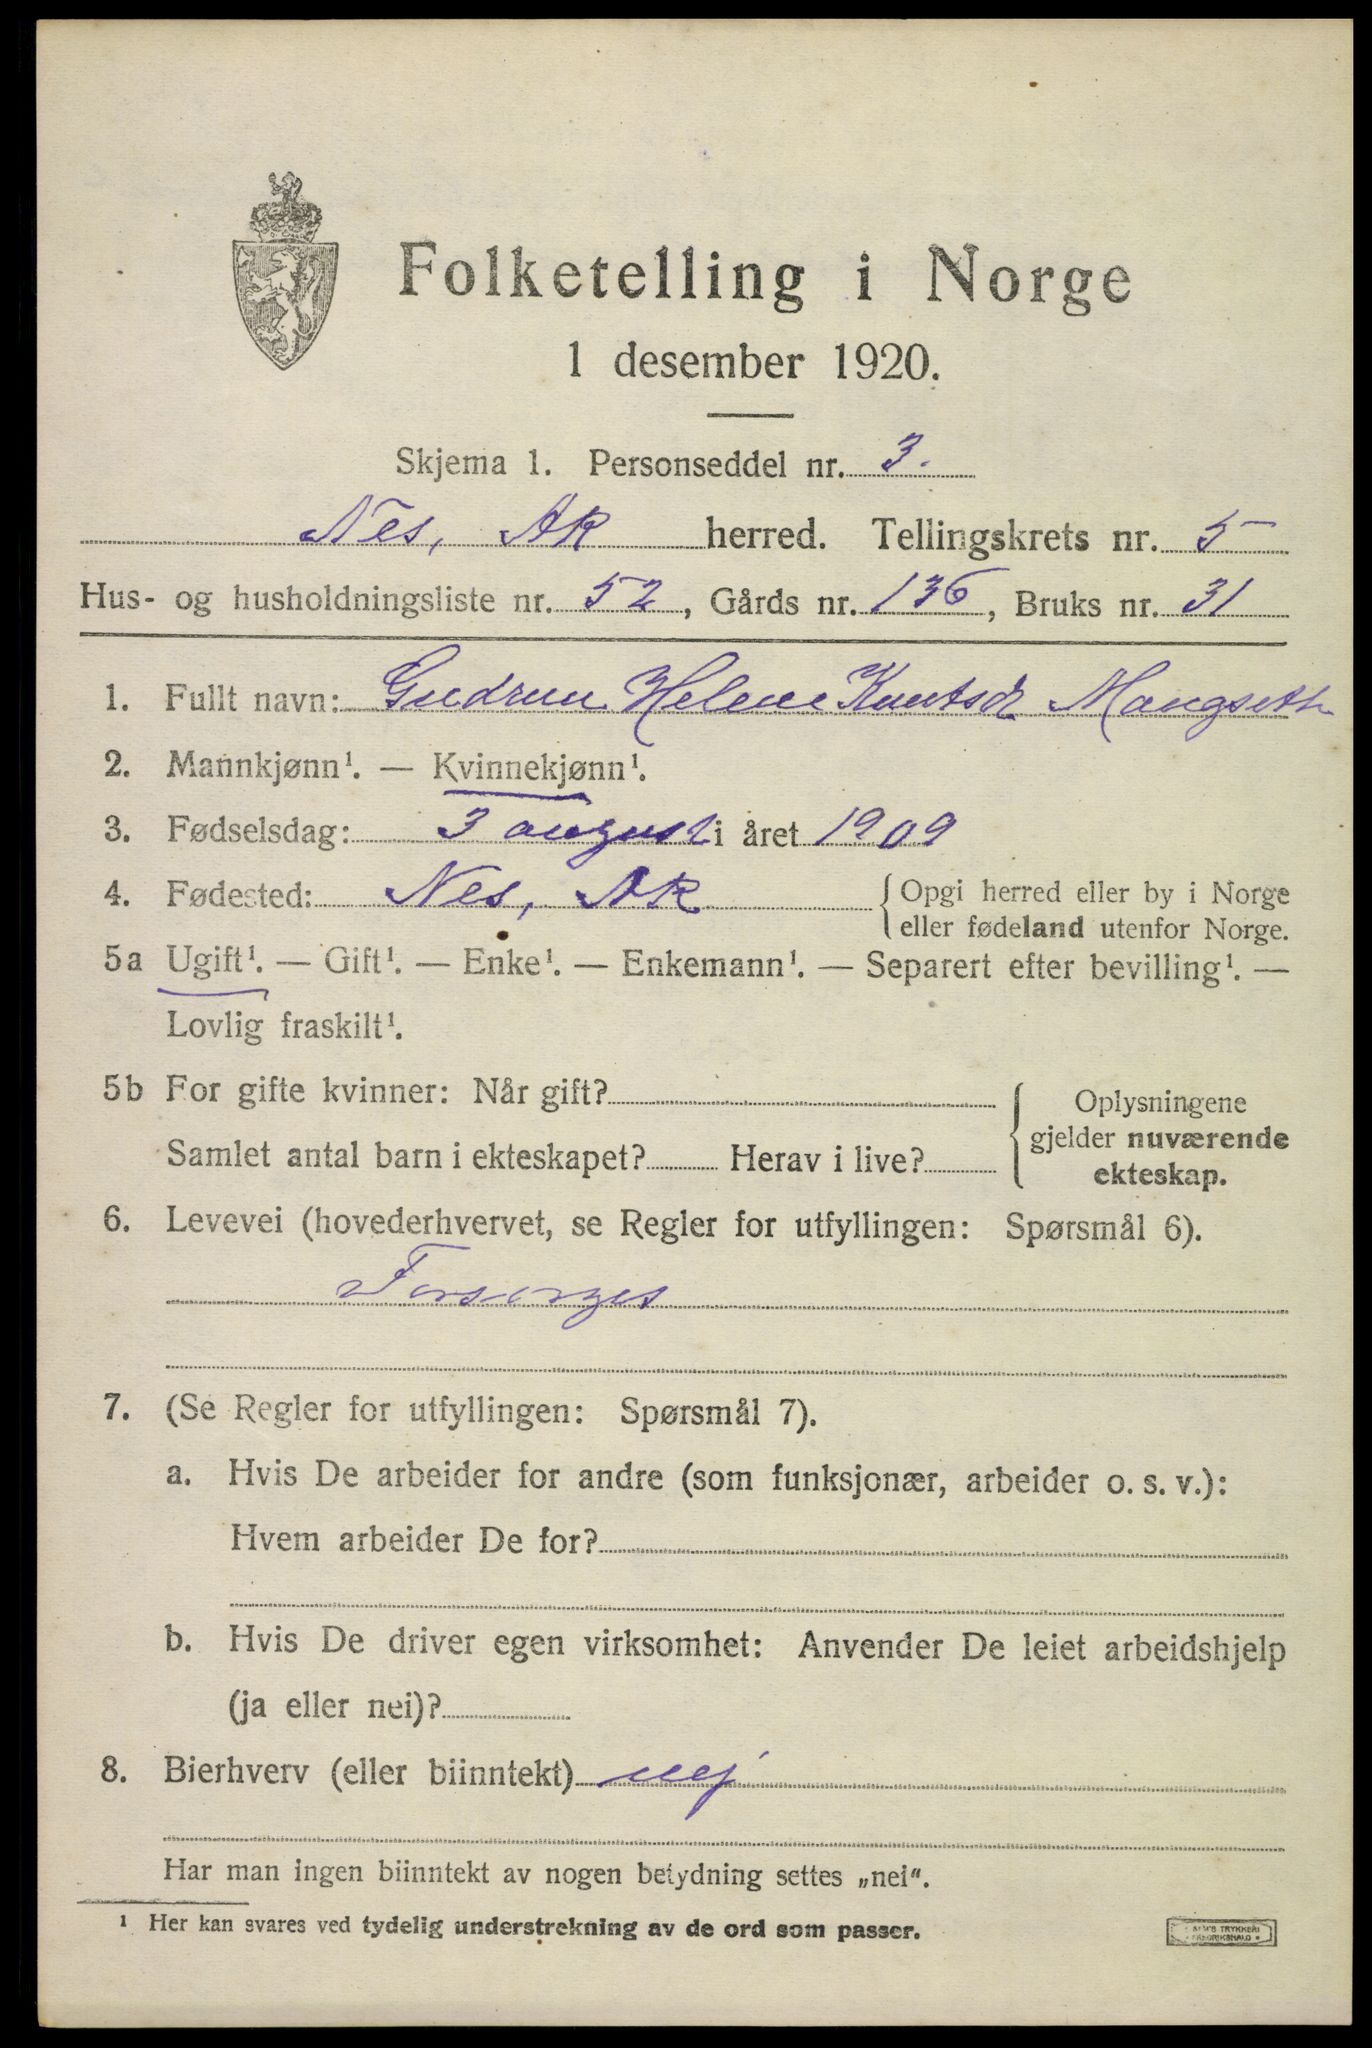 Folketelling i Norge
1 desember 1920.
Skjema 1. Personseddel nr. 3.
Nes, AK herred. Tellingskrets nr. 5
Hus- og husholdningsliste nr. 52, Gårds nr. 136, Bruks nr. 31
1. Fullt navn: Gudrun Helene Knutsd Mangseth
2. Mannkjønn¹. — Kvinnekjønn¹.
3. Fødselsdag: 3 august i året 1909
4. Fødested: Nes, AK { Opgi herred eller by i Norge
eller fødeland utenfor Norge.
5a Ugift¹. — Gift¹. — Enke¹. — Enkemann¹. — Separert efter bevilling¹. —
Lovlig fraskilt¹.
5b For gifte kvinner: Når gift?
Samlet antal barn i ekteskapet? Herav i live?
Oplysningene
gjelder nuværende
ekteskap.
6. Levevei (hovederhvervet, se Regler for utfyllingen: Spørsmål 6).
Forsørges
7. (Se Regler for utfyllingen: Spørsmål 7).
a. Hvis De arbeider for andre (som funksjonær, arbeider o. s. v.):
Hvem arbeider De for?
b. Hvis De driver egen virksomhet: Anvender De leiet arbeidshjelp
(ja eller nei)?
8. Bierhverv (eller biinntekt) nej
Har man ingen biinntekt av nogen betydning settes „nei".
¹ Her kan svares ved tydelig understrekning av de ord som passer.
TRYKKERI